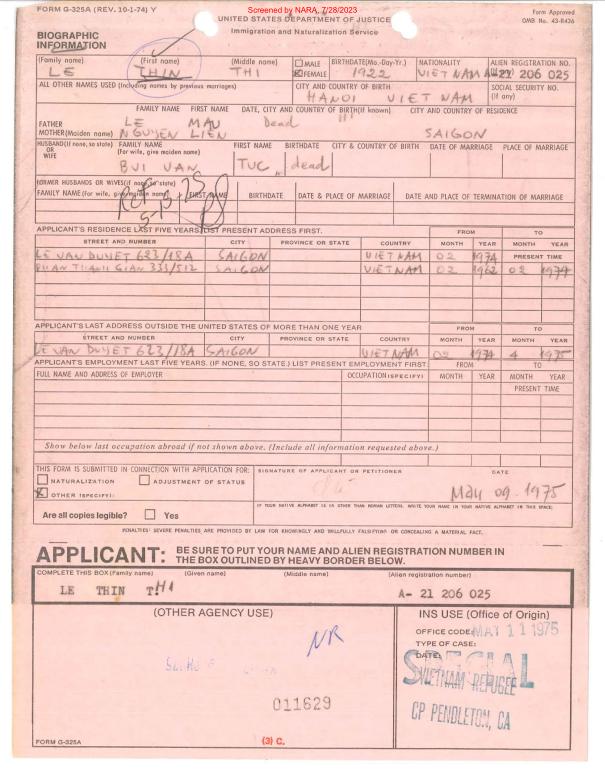 Screened by NARA, 7/28/2023
FORM G-325A (REV. 10-1-74) Y
Form Approved
OMB No. 43-R436
UNITED STATES DEPARTMENT OF JUSTICE
Immigration and Naturalization Service
BIOGRAPHIC
INFORMATION
(Family name) (First name) (Middle name) MALE FEMALE BIRTHDATE(Mo.-Day-Yr.) NATIONALITY ALIEN REGISTRATION NO.
LE THIN THI 1922 VIET NAM 21 206 025
ALL OTHER NAMES USED (Including names by previous marriages) CITY AND COUNTRY OF BIRTH SOCIAL SECURITY NO. (If any)
HANOI VIET NAM
FAMILY NAME FIRST NAME DATE, CITY AND COUNTRY OF BIRTH(If known) CITY AND COUNTRY OF RESIDENCE
FATHER LE MAU Dead
MOTHER(Maiden name) NGUYEN LIEN SAIGON
HUSBAND(If none, so state) OR WIFE FAMILY NAME (For wife, give maiden name) FIRST NAME BIRTHDATE CITY & COUNTRY OF BIRTH DATE OF MARRIAGE PLACE OF MARRIAGE
BUI VAN TUC dead
FORMER HUSBANDS OR WIVES(If none, so state)
FAMILY NAME (For wife, give maiden name) FIRST NAME BIRTHDATE DATE & PLACE OF MARRIAGE DATE AND PLACE OF TERMINATION OF MARRIAGE
APPLICANT'S RESIDENCE LAST FIVE YEARS, LIST PRESENT ADDRESS FIRST. FROM TO
STREET AND NUMBER CITY PROVINCE OR STATE COUNTRY MONTH YEAR MONTH YEAR
LE VAN DUYET 623/18A SAIGON VIET NAM 02 1974 PRESENT TIME
PHAN THANH GIAN 333/512 SAIGON VIET NAM 02 1962 02 1974
APPLICANT'S LAST ADDRESS OUTSIDE THE UNITED STATES OF MORE THAN ONE YEAR FROM TO
STREET AND NUMBER CITY PROVINCE OR STATE COUNTRY MONTH YEAR MONTH YEAR
LE VAN DUYET 623/18A SAIGON VIET NAM 02 1974 4 1975
APPLICANT'S EMPLOYMENT LAST FIVE YEARS. (IF NONE, SO STATE.) LIST PRESENT EMPLOYMENT FIRST. FROM TO
FULL NAME AND ADDRESS OF EMPLOYER OCCUPATION(SPECIFY) MONTH YEAR MONTH YEAR
PRESENT TIME
Show below last occupation abroad if not shown above. (Include all information requested above.)
THIS FORM IS SUBMITTED IN CONNECTION WITH APPLICATION FOR: SIGNATURE OF APPLICANT OR PETITIONER DATE
NATURALIZATION ADJUSTMENT OF STATUS
OTHER (SPECIFY): May 09 - 1975
Are all copies legible? Yes IF YOUR NATIVE ALPHABET IS IN OTHER THAN ROMAN LETTERS, WRITE YOUR NAME IN YOUR NATIVE ALPHABET IN THIS SPACE:
PENALTIES: SEVERE PENALTIES ARE PROVIDED BY LAW FOR KNOWINGLY AND WILLFULLY FALSIFYING OR CONCEALING A MATERIAL FACT.
APPLICANT: BE SURE TO PUT YOUR NAME AND ALIEN REGISTRATION NUMBER IN
THE BOX OUTLINED BY HEAVY BORDER BELOW.
COMPLETE THIS BOX (Family name) (Given name) (Middle name) (Alien registration number)
LE THIN THI A- 21 206 025
(OTHER AGENCY USE) INS USE (Office of Origin)
OFFICE CODE: MAY 11 1975
TYPE OF CASE:
DATE:
NR
SPECIAL
VIETNAM REFUGEE
011629
CP PENDLETON, CA
FORM G-325A (3) C.